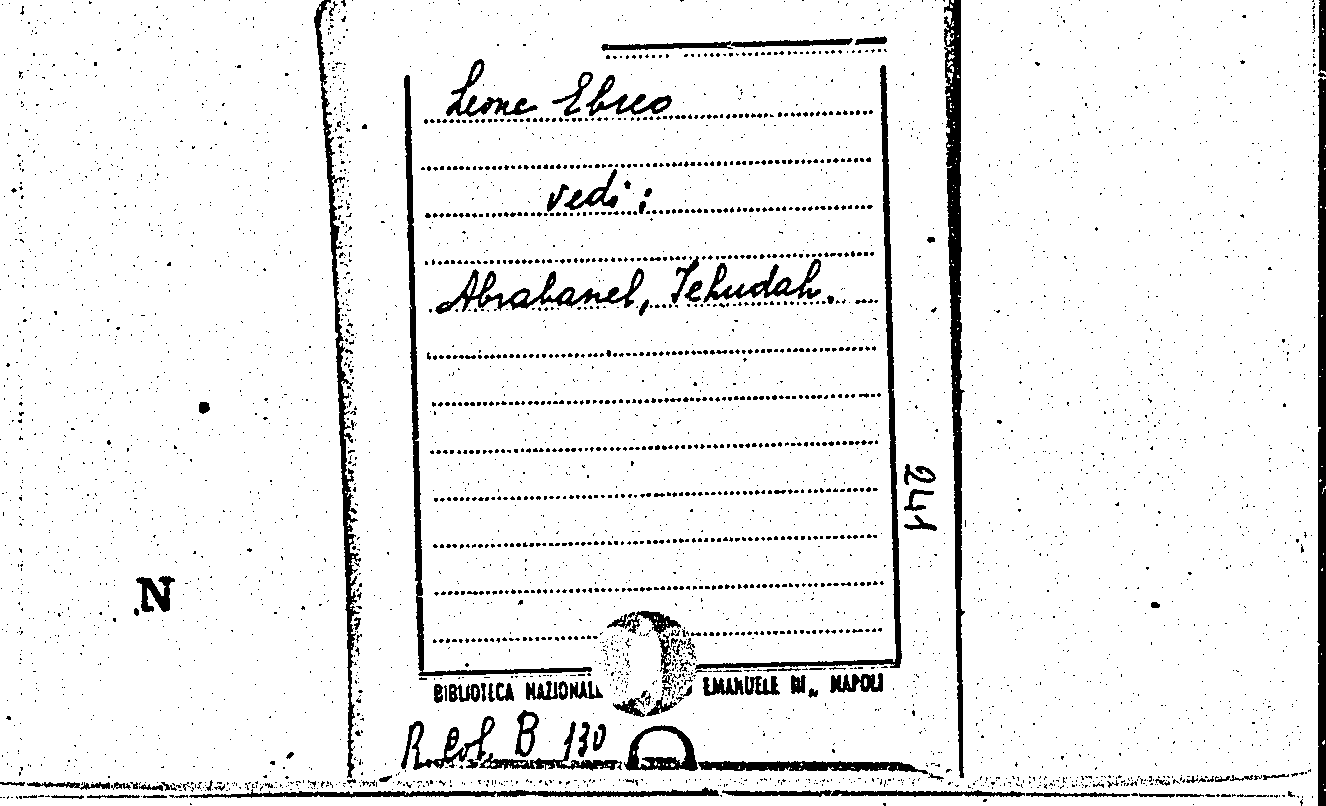 Leone Ebreo
vedi:
Abrabanel, Jehudah.
241
N
BIBLIOTECA NAZIONALE EMANUELE III„ NAPOLI
R. Col. B 130